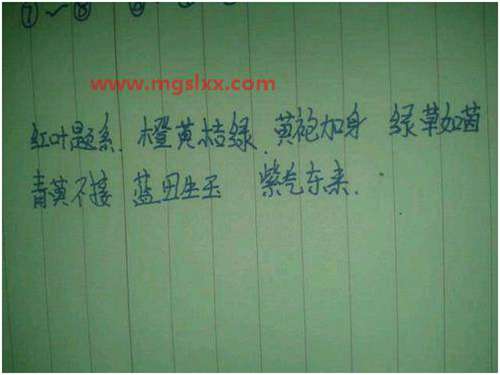 ⑦~⑧ ⑥
www.mgslxx.com
红叶题系. 橙黄桔绿. 黄袍加身 绿草如茵
青黄不接 蓝田生玉 紫气东来.